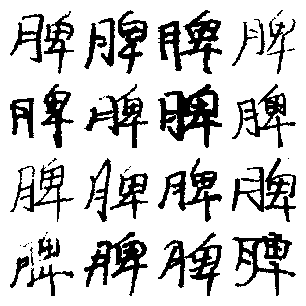 脾脾脾脾
脾脾脾脾
脾脾脾脾
脾脾脾脾